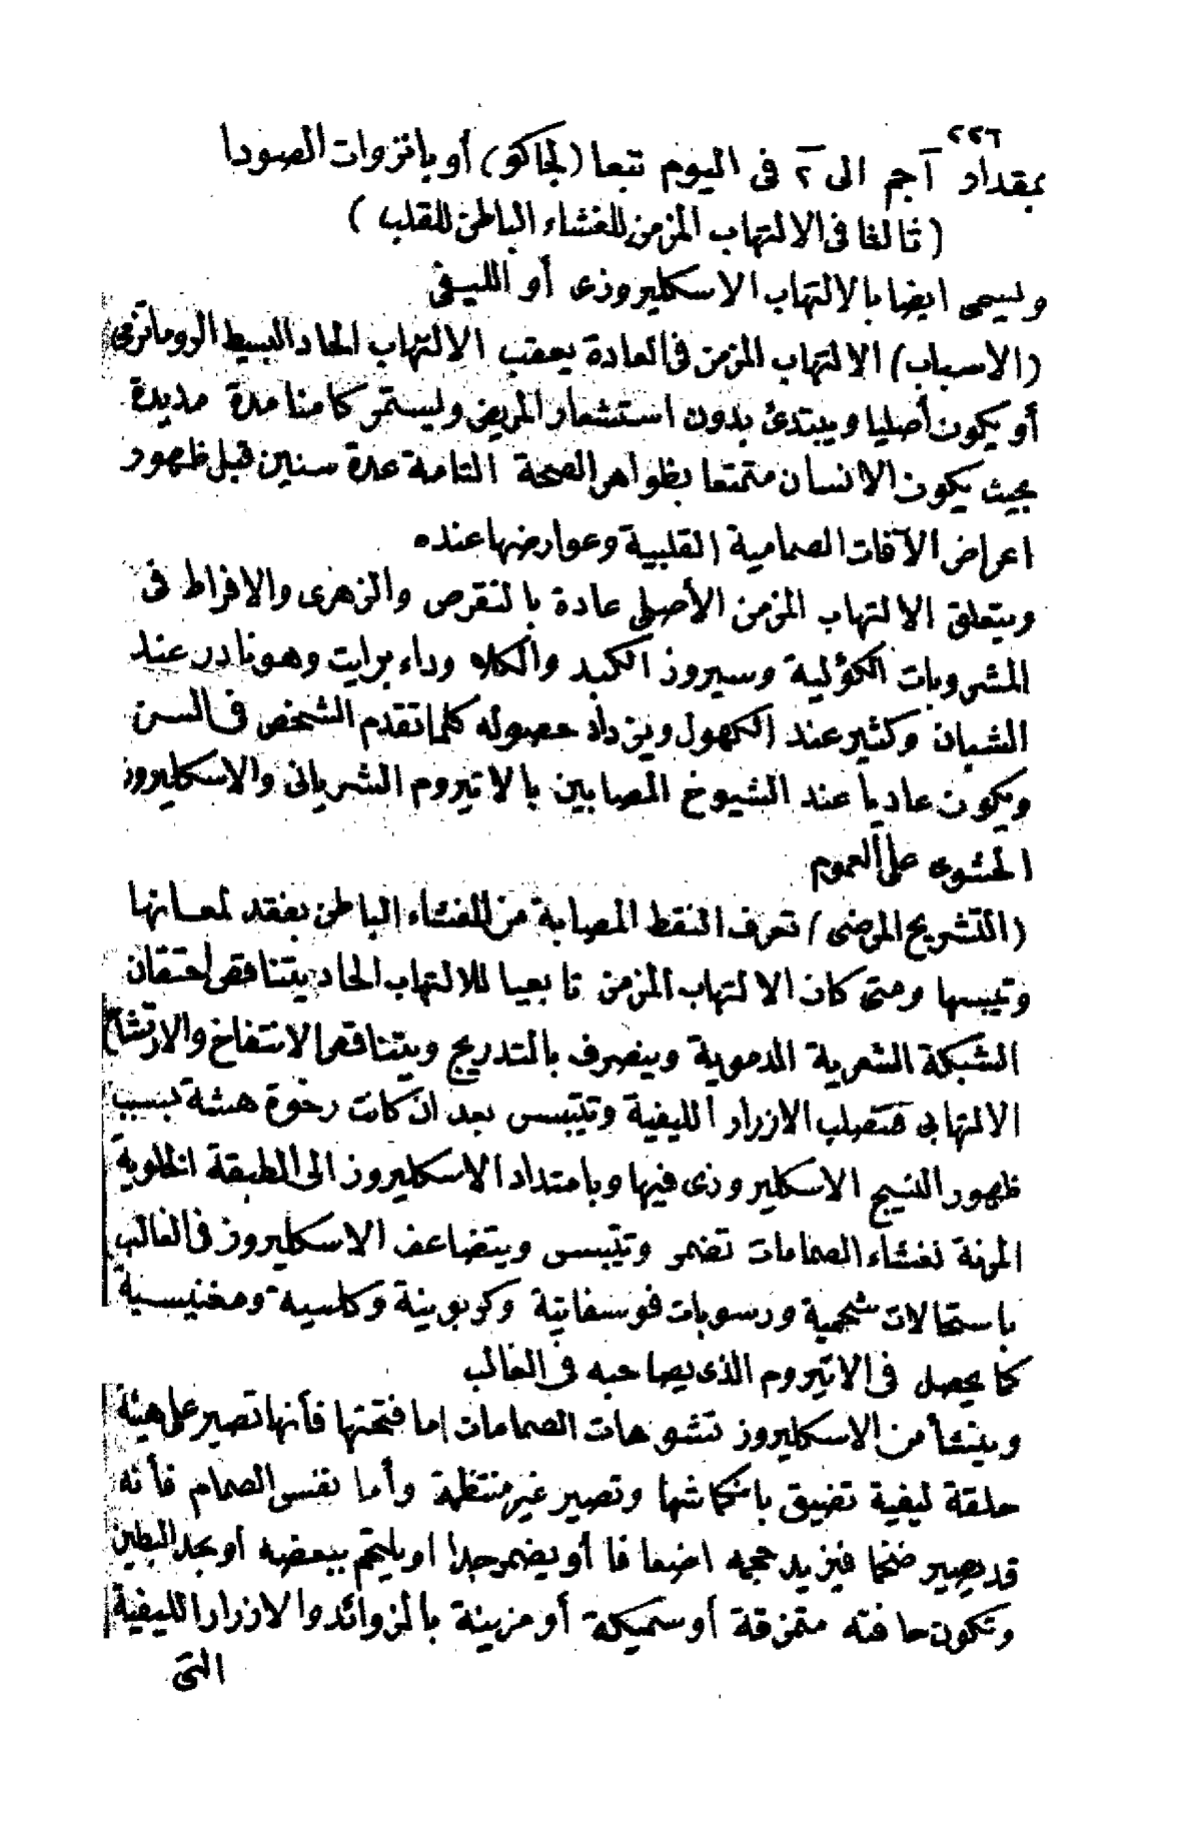 ٢٢٦
بمقدار ١ جم الى ٢ فى اليوم تبعا (لجاكو) أو بانزوات الصودا
(ثالثا فى الالتهاب المزمن للغشاء الباطن للقلب)
ويسمى ايضا بالالتهاب الاسكليروزى أو الليفى
(الاسباب) الالتهاب المزمن فى العادة يعقب الالتهاب الحاد البسيط الروماتزمى
أو يكون أصليا ويبتدئ بدون استشعار المريض ويستمر كامنا مدة مديدة
بحيث يكون الانسان متمتعا بظواهر الصحة التامة عدة سنين قبل ظهور
اعراض الآفات الصمامية القلبية وعوارضها عنده
ويتعلق الالتهاب المزمن الأصلى عادة بالنقرص والزهرى والافراط فى
المشروبات الكؤلية وسيروز الكبد والكلاه وداء برايت وهو نادر عند
الشبان وكثير عند الكهول ويزداد حصوله كلما تقدم الشخص فى السن
ويكون عاديا عند الشيوخ المصابين بالاتيروم الشريانى والاسكليروز
الحشوى على العموم
(التشريح المرضى) تعرف النقط المصابة من الغشاء الباطن بفقد لمعانها
وتيبسها ومتى كان الالتهاب المزمن تابعيا للالتهاب الحاد يتناقص احتقان
الشبكة الشعرية الدموية وينصرف بالتدريج ويتناقص الانتفاخ والارتشاح
الالتهابى فتصلب الازرار الليفية وتتيبس بعد ان كانت رخوة هشة بسبب
ظهور النسيج الاسكليروزى فيها وبامتداد الاسكليروز الى الطبقة الخلوية
المرنة لغشاء الصمامات تضمر وتتيبس ويتضاعف الاسكليروز فى الغالب
باستحالات شحمية ورسوبات فوسفاتية وكربونية وكلسية ومغنيسية
كما يحصل فى الاتيروم الذى يصاحبه فى الغالب
وينشأ من الاسكليروز تشوهات الصمامات إما فتحتها فأنها تصير على هيئة
حلقة ليفية تضيق بانكماشها وتصير غير منتظمة وأما نفس الصمام فأنه
قد يصير ضخما فيزيد حجمه اضعافا أو يضمر جدا او يلتحم ببعضه او بجدر البطين
وتكون حافته متمزقة أو سميكة أو مزينة بالزوائد والازرار الليفية
التى